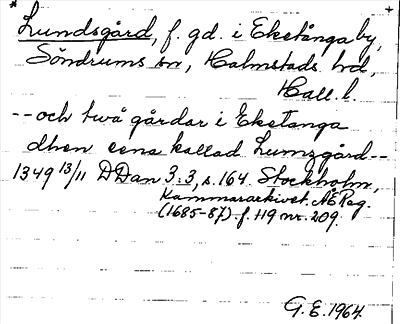 * Lundsgård, f. gd. i Eketånga by, +
Söndrums sn, Halmstads hd,
Hall. l.
-- och twå gårdar i Eketanga
dhen eena kallad Lumzgård --
1349 13/11 DDan 3:3, s. 164. Stockholm,
Kammararkivet. AE Reg.
(1685-87) f. 119 nr. 209.
G. E. 1964.